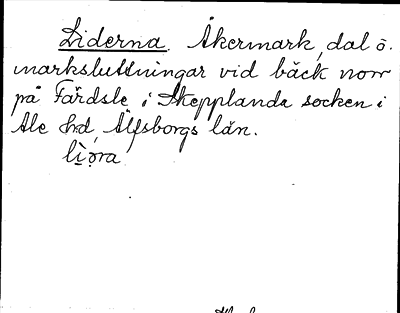 Liderna. Åkermark, dal o.
marksluttningar vid bäck norr
på Färdsle i Skepplanda socken i
Ale hd, Älfsborgs län.